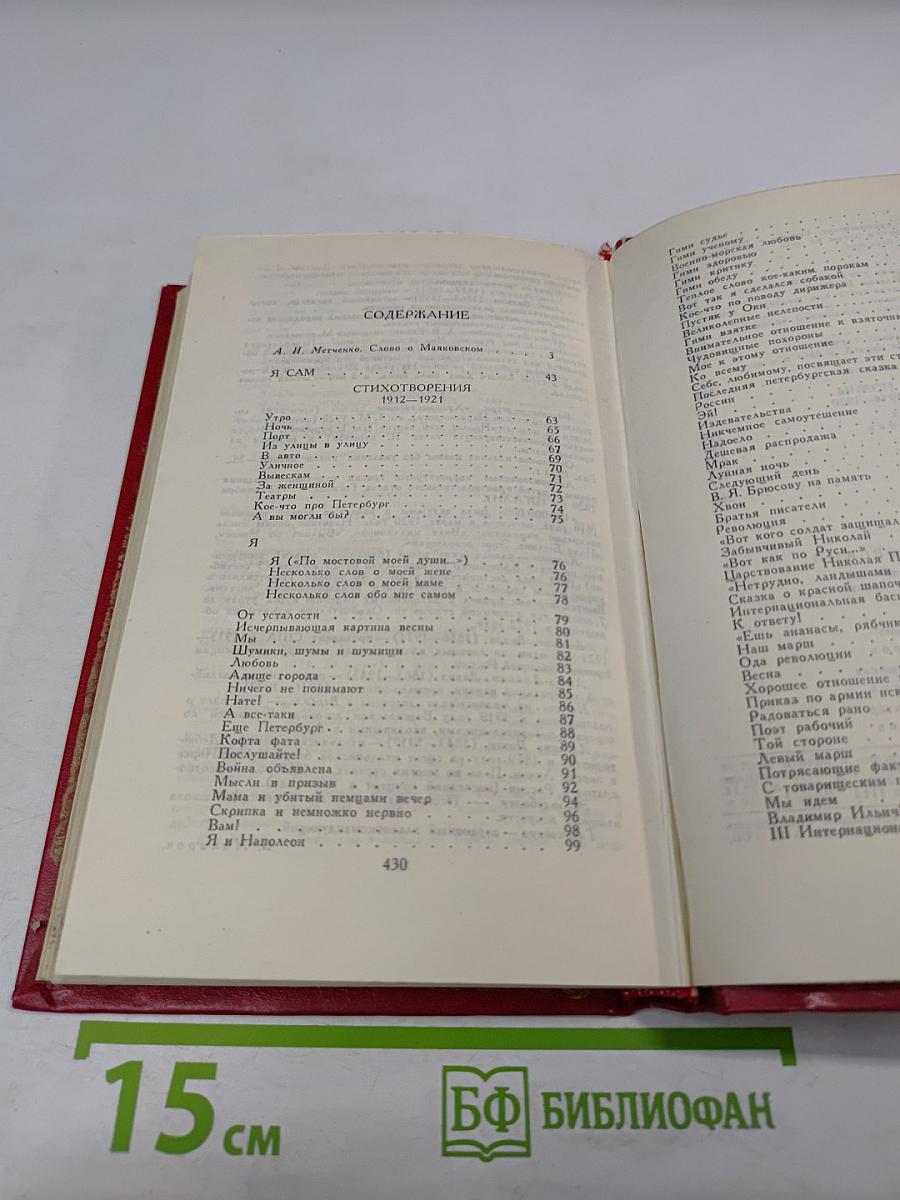 СОДЕРЖАНИЕ
А. И. Метченко. Слово о Маяковском . . . . 3
Я САМ . . . . 43
СТИХОТВОРЕНИЯ
1912—1921
Утро . . . . 63
Ночь . . . . 65
Порт . . . . 66
Из улицы в улицу . . . . 67
В авто . . . . 69
Уличное . . . . 70
Вывескам . . . . 71
За женщиной . . . . 72
Театры . . . . 73
Кое-что про Петербург . . . . 74
А вы могли бы? . . . . 75
Я
Я («По мостовой моей души...») . . . . 76
Несколько слов о моей жене . . . . 76
Несколько слов о моей маме . . . . 77
Несколько слов обо мне самом . . . . 78
От усталости . . . . 79
Исчерпывающая картина весны . . . . 80
Мы . . . . 81
Шумики, шумы и шумищи . . . . 82
Любовь . . . . 83
Адище города . . . . 84
Ничего не понимают . . . . 85
Нате! . . . . 86
А все-таки . . . . 87
Еще Петербург . . . . 88
Кофта фата . . . . 89
Послушайте! . . . . 90
Война объявлена . . . . 91
Мысли в призыв . . . . 92
Мама и убитый немцами вечер . . . . 94
Скрипка и немножко нервно . . . . 96
Вам! . . . . 98
Я и Наполеон . . . . 99
430
Гимн судье
Гимн ученому
Военно-морская любовь
Гимн здоровью
Гимн критику
Гимн обеду
Теплое слово кое-каким порокам
Вот так я сделался собакой
Кое-что по поводу дирижера
Пустяк у Оки
Великолепные нелепости
Гимн взятке
Внимательное отношение к
Чудовищные похороны
Мое к этому отношение
Ко всему
Себе, любимому, посвящает эти
Последняя петербургская сказка
России
Эй!
Издевательства
Никчемное самоутешение
Надоело
Дешевая распродажа
Мрак
Лунная ночь
Следующий день
В. Я. Брюсову на память
Хвои
Братья писатели
Революция
«Вот кого солдат
Забывчивый Николай
«Вот как по Руси...»
Царствование Николая
«Нетрудно, ландышами
Сказка о красной
Интернациональная
К ответу!
«Ешь ананасы,
Наш марш
Ода революции
Весна
Хорошее отношение
Приказ по армии
Радоваться рано
Поэт рабочий
Той стороне
Левый марш
Потрясающие
С товарищеским
Мы идем
Владимир
III
15 см
БФ БИБЛИОФАН